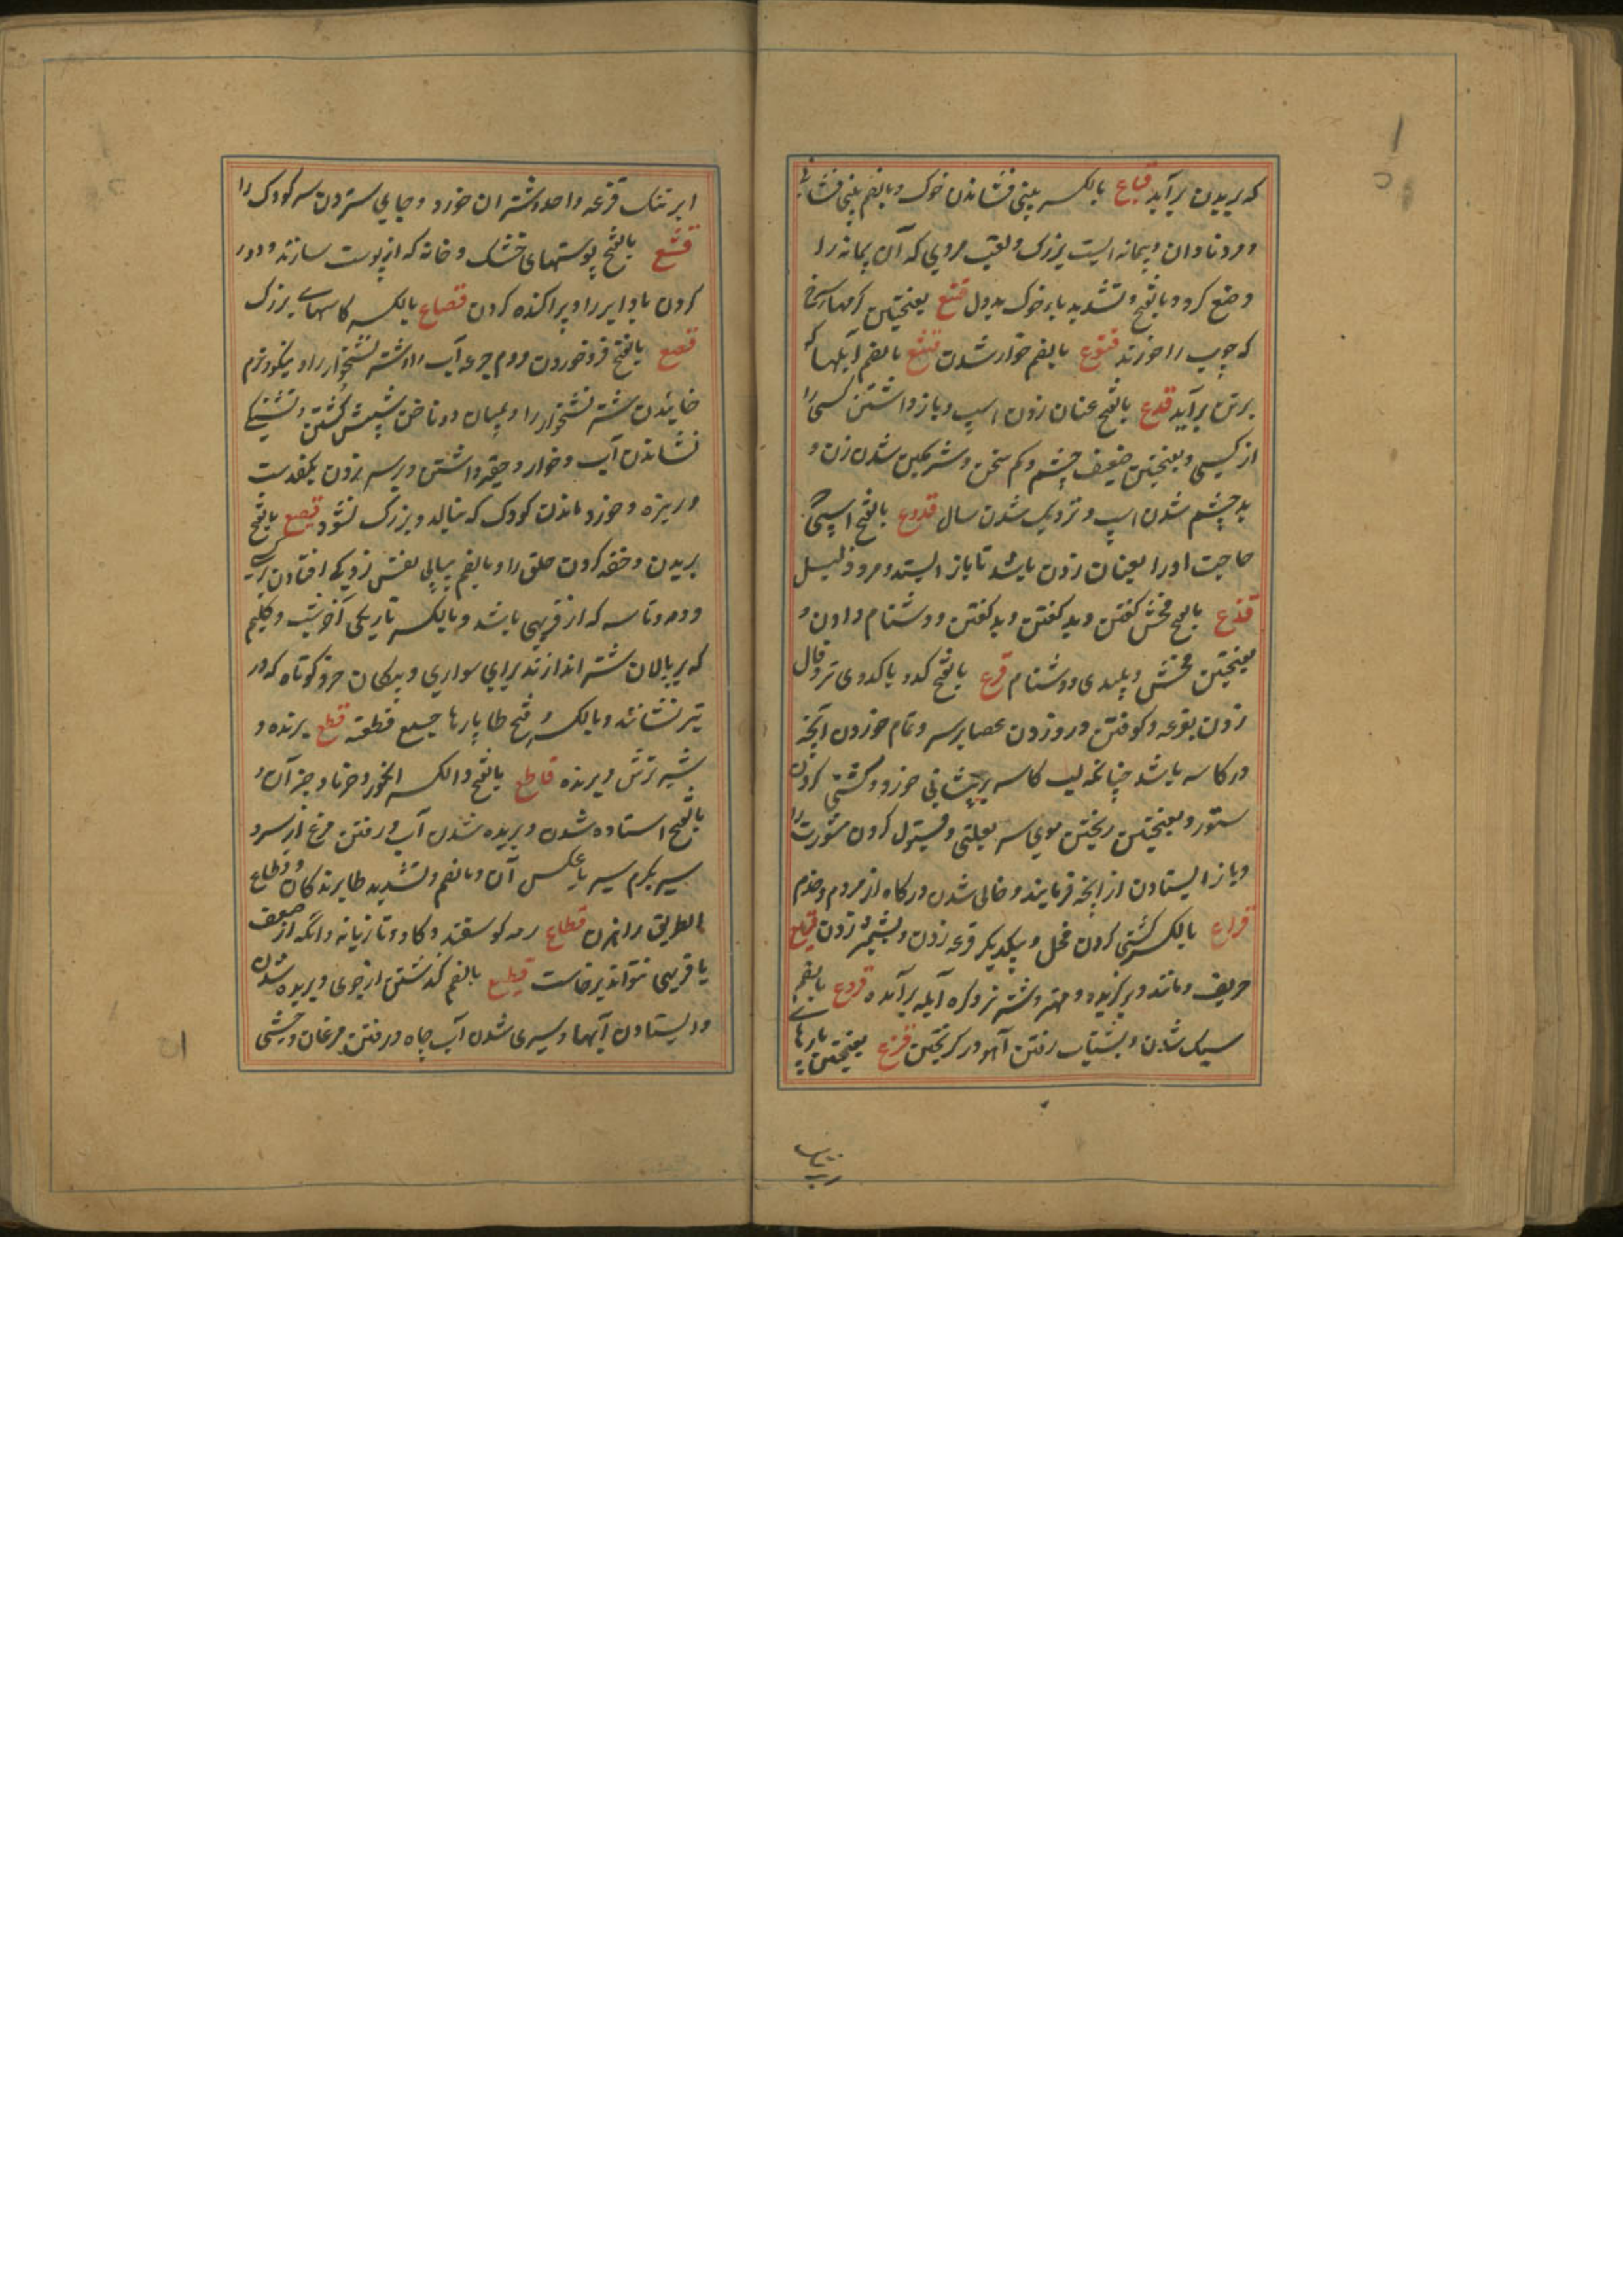 که بریدن برآید قباع بالکسر بینی فشاندن خوک و بالضم بینی فشاننده
و مرد نادان و پیمانه ایست بزرک و لقب مردی که آن پیمانه را
وضع کرد و بالفتح و تشدید باء خوک بددل قتع بفتحتین کرمهای سرخ
که چوب را خورند قتوع بالضم خوار شدن بالضم آبلها که
برتن برآید قدع بالفتح عنان زدن اسپ و باز داشتن کسی را
از کسی و بفتحتین ضعیف چشم و کم سخن و شرمکین شدن زن و
بد چشم شدن اسپ و نزدیک شدن سال قدوع بالفتح اسپی که
حاجت او را بعنان زدن باشد تا باز ایستد و مرد ذلیل
قذع بالفتح فحش کفتن و بد کفتن و بد کفتن و دشنام دادن و
بفتحتین فحش و پلیدی و دشنام قرع بالفتح کدو یا کدوی تر و فال
زدن بقرعه و کوفتن در و زدن عصا برسر و تمام خوردن آنچه
در کاسه باشد چنانچه لب کاسه بر پیشانی خورد و کشتی کردن
ستور و بفتحتین ریختن موی سر بعلتی و قبول کردن مشورت را
و باز ایستادن از آنچه فرمایند و خالی شدن درکاه از مردم و خدم
قراع بالکسر کشتی کردن فحل و بیکدیکر قرعه زدن و شمشیر زدن قریع
حریف و مانند و برکزیده و مهتر و شتر نر و کره آبله برآمده قزوع بالضم
سبک شدن و بشتاب رفتن آهو در کریختن قزع بفتحتین پارهای
ابر تنک قزعه واحد و شتران خورد و جای ستردن سر کودک را
قشع بالفتح پوستهای خشک و خانه که از پوست سازند و دور
کردن باد ابر را و پراکنده کردن قصاع بالکسر کاسهای بزرک
قصع بالفتح فرو خوردن مردم جرعه آب را و شتر نشخوار را و نیکو و نرم
خائیدن شتر نشخوار را و میان دو ناخن شپش کشتن و تشنکی
نشاندن آب و خوار و حقیر داشتن و برسر زدن بکف دست
و ریزه و خورد ماندن کودک که نبالد و بزرک نشود بالفتح
بریدن و خفه کردن حلق را و بالضم بیاپی نفس زدن
و دمه و تاسه که از فربهی باشد و بالکسر تاریکی آخر شب و کلیم
که بر پالان شتر اندازند برای سواری و پیکان خرد کوتاه که در
تیر نشانند و بالکسر و فتح طا پارها جمع قطعه قطع برنده و
شیر ترش و برنده قاطع بالفتح والکسر انکور و خرما و جز آن و
بالفتح استاده شدن و بریده شدن آب و رفتن مرغ از سرد
سیر بکرم سیر یا عکس آن و بالضم و تشدید طا برندکان و قطاع
الطریق راهزن قطاع رمه کوسفند و کاو و تازیانه و انکه از ضعف
یا فربهی نتواند برخاست بالضم کذشتن از جوی و بریده شدن
و ایستادن آبها و سپری شدن آب چاه و رفتن مرغان وحشی